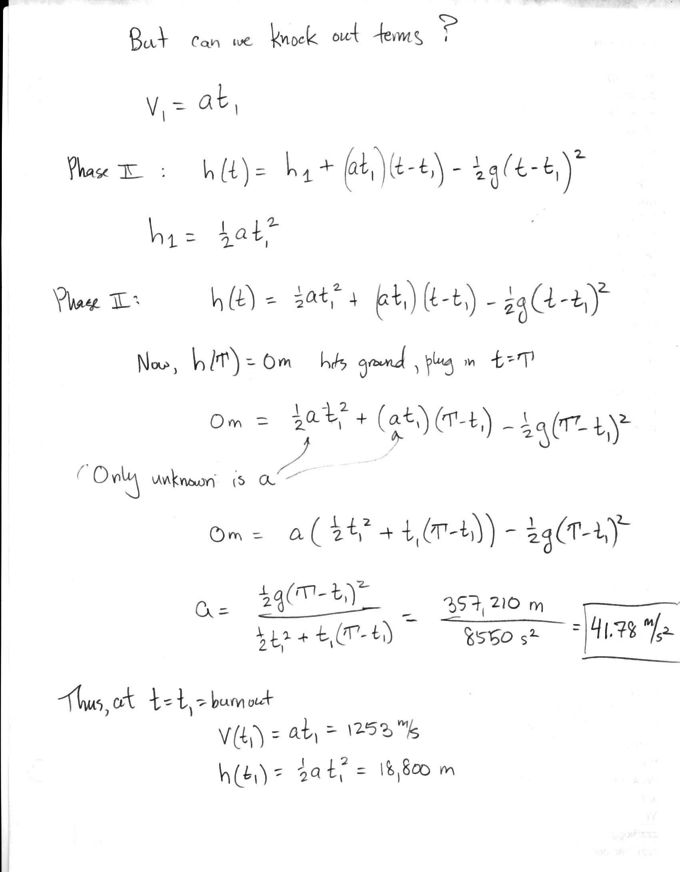 But can we knock out terms?
V₁ = at₁
Phase II : h(t) = h₁ + (at₁)(t-t₁) - ½g(t-t₁)²
h₁ = ½at₁²
Phase II: h(t) = ½at₁² + (at₁)(t-t₁) - ½g(t-t₁)²
Now, h(T) = 0m hits ground, plug in t=T
0m = ½at₁² + (at₁)(T-t₁) - ½g(T-t₁)²
Only unknown is a
0m = a(½t₁² + t₁(T-t₁)) - ½g(T-t₁)²
a = ½g(T-t₁)² / ½t₁² + t₁(T-t₁) = 357,210 m / 8550 s² = 41.78 m/s²
Thus, at t=t₁=burnout
V(t₁) = at₁ = 1253 m/s
h(t₁) = ½at₁² = 18,800 m